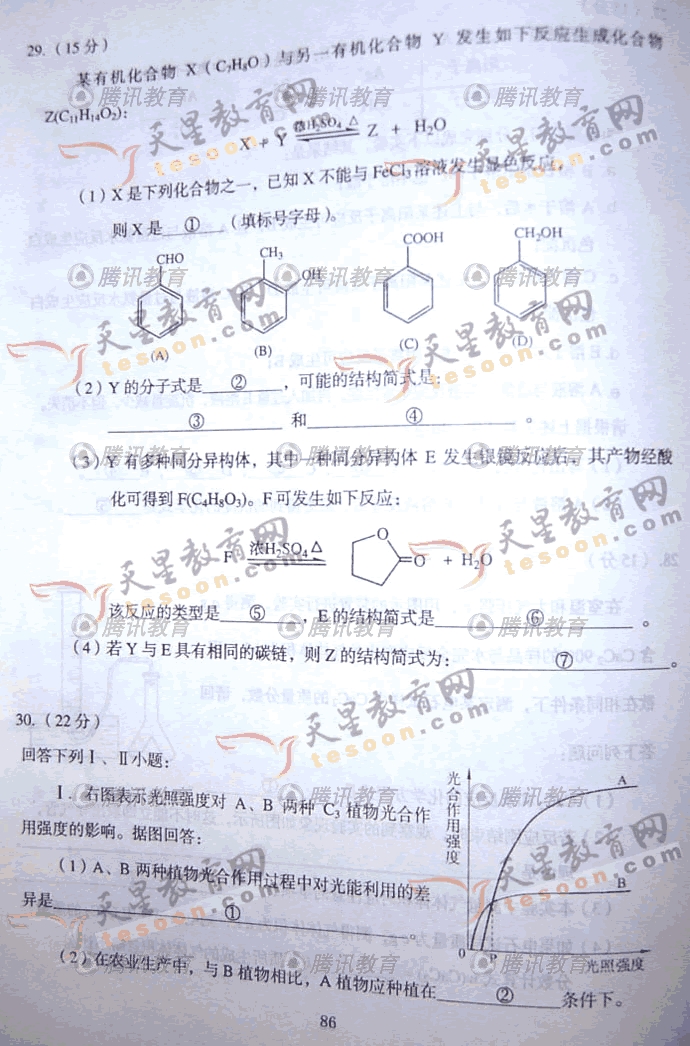 29.（15 分）
某有机化合物 X（C₇H₈O）与另一有机化合物 Y 发生如下反应生成化合物
Z(C₁₁H₁₄O₂):
X + Y 浓H₂SO₄ △ Z + H₂O
（1）X 是下列化合物之一，已知 X 不能与 FeCl₃ 溶液发生显色反应，
则 X 是 ① （填标号字母）。
CHO CH₃ OH COOH CH₂OH
(A) (B) (C) (D)
（2）Y 的分子式是 ② ，可能的结构简式是：
③ 和 ④ 。
（3）Y 有多种同分异构体，其中一种同分异构体 E 发生银镜反应后，其产物经酸
化可得到 F(C₄H₈O₃)。F 可发生如下反应：
F 浓H₂SO₄ △ O O + H₂O
该反应的类型是 ⑤ ，E 的结构简式是 ⑥ 。
（4）若 Y 与 E 具有相同的碳链，则 Z 的结构简式为： ⑦ 。
30.（22 分）
回答下列Ⅰ、Ⅱ小题：
Ⅰ．右图表示光照强度对 A、B 两种 C₃ 植物光合作
用强度的影响。据图回答：
（1）A、B 两种植物光合作用过程中对光能利用的差
异是 ① 。
（2）在农业生产中，与 B 植物相比，A 植物应种植在 ② 条件下。
光合作用强度
A
B
0 P 光照强度
86
腾讯教育
天星教育网
tesoon.com